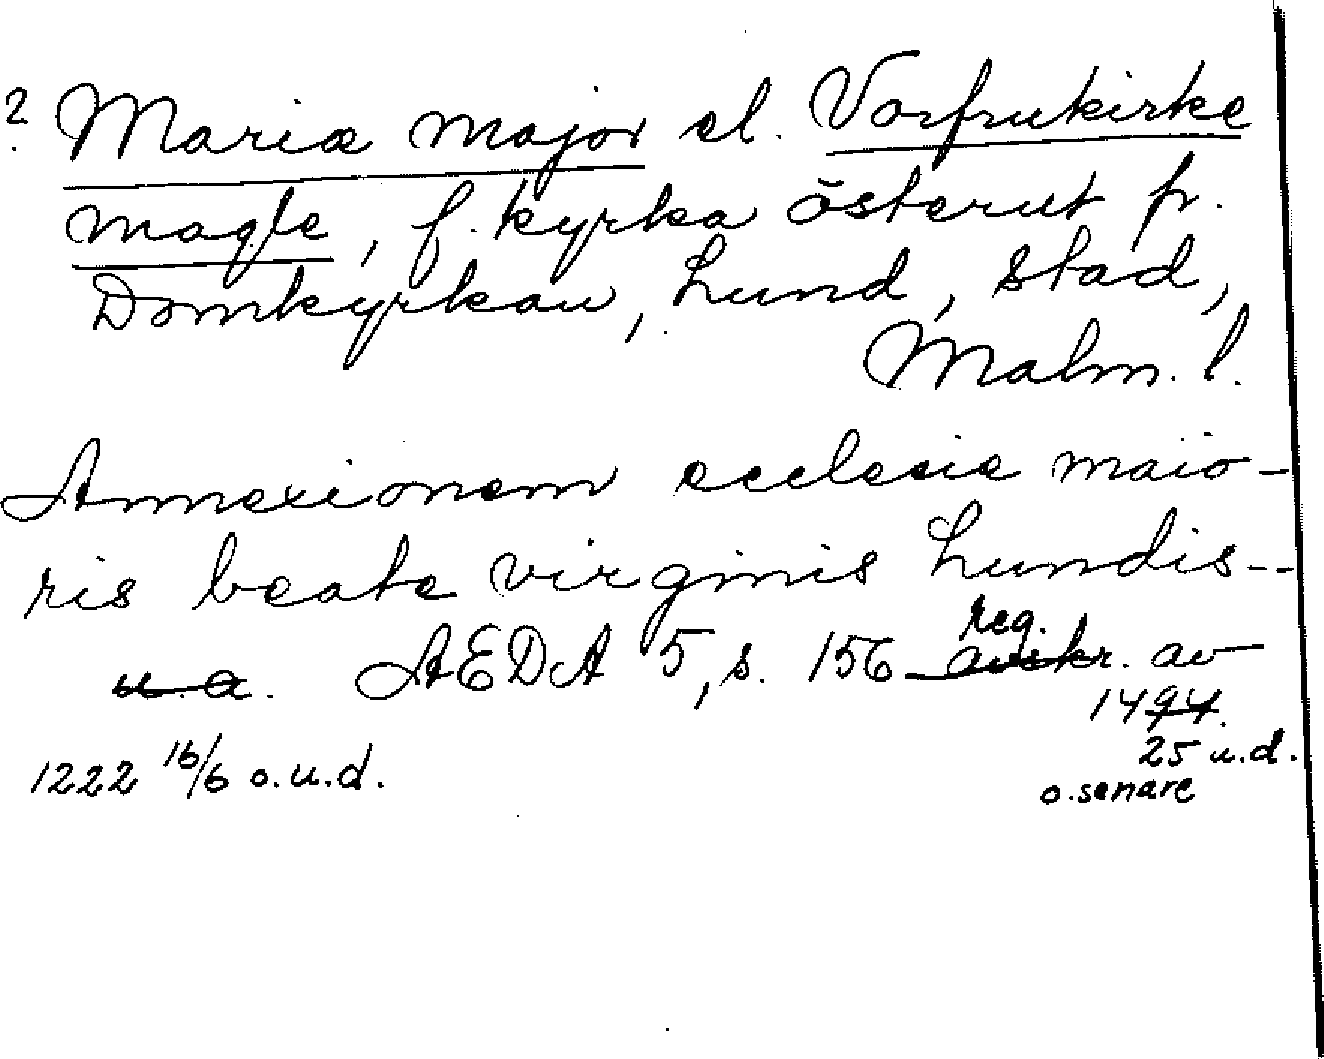 ? Mariæ major el. Vorfrukirke
magle, f. kyrka österut fr.
Domkyrkan, Lund, stad,
Malm. l.
Annexionem ecclesie maio-
ris beate virginis Lundis--
reg.
u. a. AEDA 5, s. 156 avskr. av
1494.
1222 16/6 o.u.d. 25 u.d.
o. senare